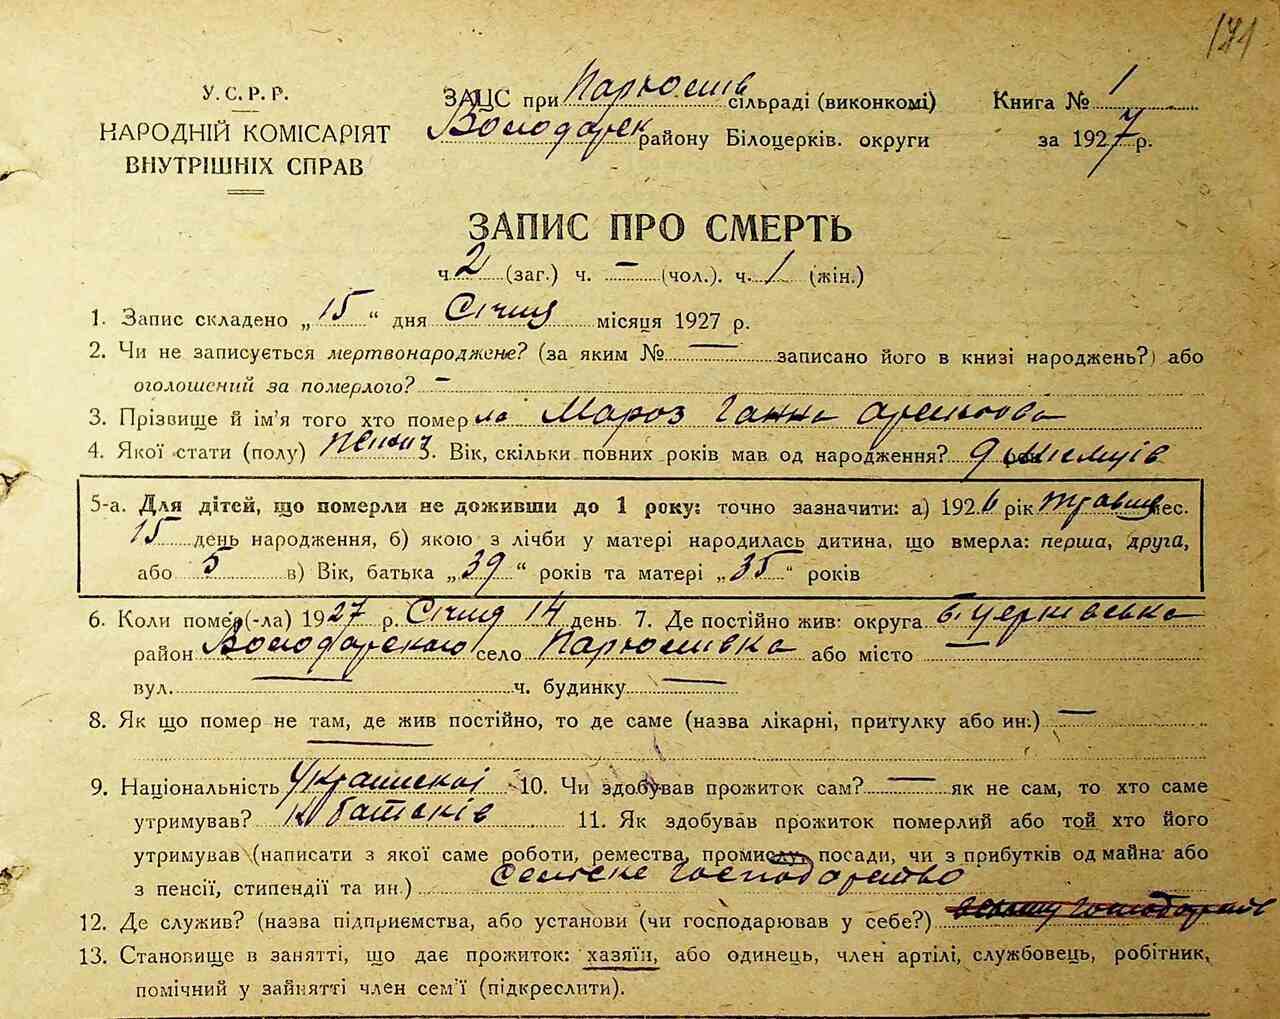 171
У.С.Р.Р.
НАРОДНІЙ КОМІСАРІЯТ
ВНУТРІШНІХ СПРАВ
ЗАЦС при сільраді (виконкомі) Книга № 1
Володарск району Білоцерків. округи за 1927 р.
ЗАПИС ПРО СМЕРТЬ
ч. 2 (заг.) ч. – (чол.). ч. 1 (жін.)
1. Запис складено „15“ дня Січня місяця 1927 р.
2. Чи не записується мертвонароджене? (за яким № — записано його в книзі народжень?) або
оголошений за померлого? –
3. Прізвище й ім'я того хто помер ла Мароз Ганна
4. Якої стати (полу) З. Вік, скільки повних років мав од народження? 9 місяців
5-а. Для дітей, що померли не доживши до 1 року: точно зазначити: а) 1926 рік травня мес.
15 день народження, б) якою з лічби у матері народилась дитина, що вмерла: перша, друга,
або 5 в) Вік, батька „39“ років та матері „35“ років
6. Коли помер (-ла) 1927 р. Січня 14 день 7. Де постійно жив: округа Б Церківська
район Володарского село або місто —
вул. — ч. будинку —
8. Як що помер не там, де жив постійно, то де саме (назва лікарні, притулку або ин.) —
9. Національність 10. Чи здобував прожиток сам? — як не сам, то хто саме
утримував? батьків 11. Як здобував прожиток померлий або той хто його
утримував (написати з якої саме роботи, ремества, промислу, посади, чи з прибутків од майна або
з пенсії, стипендії та ин.) Сельске Господарство
12. Де служив? (назва підприємства, або установи (чи господарював у себе?)
13. Становище в занятті, що дає прожиток: хазяїн, або одинець, член артілі, службовець, робітник,
помічний у зайнятті член сем'ї (підкреслити).